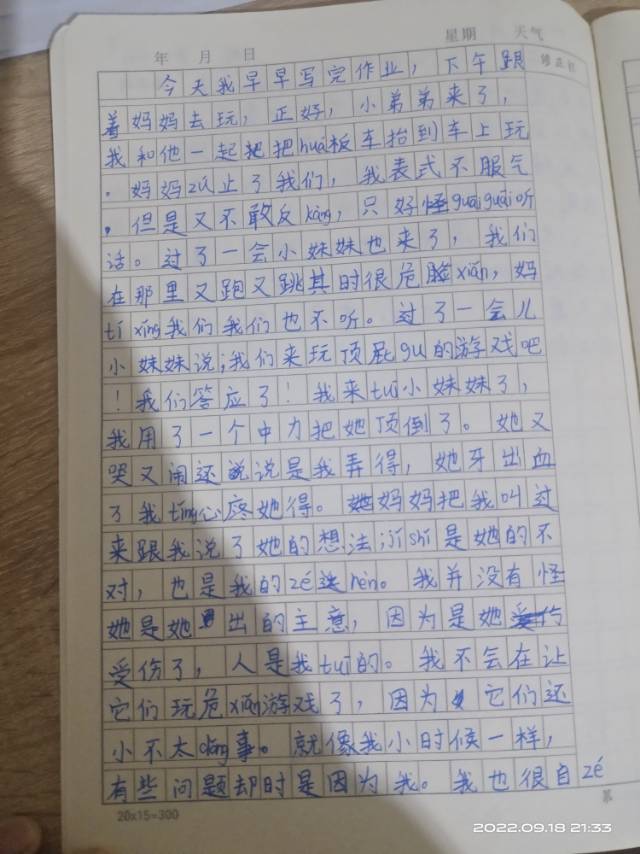 年 月 日 星期 天气
今天我早早写完作业，下午跟
着妈妈去玩，正好，小弟弟来了，
我和他一起把把huá板车抬到车上玩
。妈妈zǔ止了我们，我表式不服气
，但是又不敢反kàng，只好怪guāiguāi听
话。过了一会小妹妹也来了，我们
在那里又跑又跳其时很危险xiǎn，妈
tí xǐng我们我们也不听。过了一会儿
小妹妹说；我们来玩顶屁gu的游戏吧
！我们答应了！我来tuī小妹妹了，
我用了一个中力把她顶倒了。她又
哭又闹还说说是我弄得，她牙出血
了我tǐng心疼她得。她妈妈把我叫过
来跟我说了她的想法；jí shǐ是她的不
对，也是我的zé rèn。我并没有怪
她是她出的主意，因为是她受伤
受伤了，人是我tuī的。我不会在让
它们玩危xiǎn游戏了，因为它们还
小不太dǒng事。就像我小时候一样，
有些问题却时是因为我。我也很自zé
20x15=300
2022.09.18 21:33